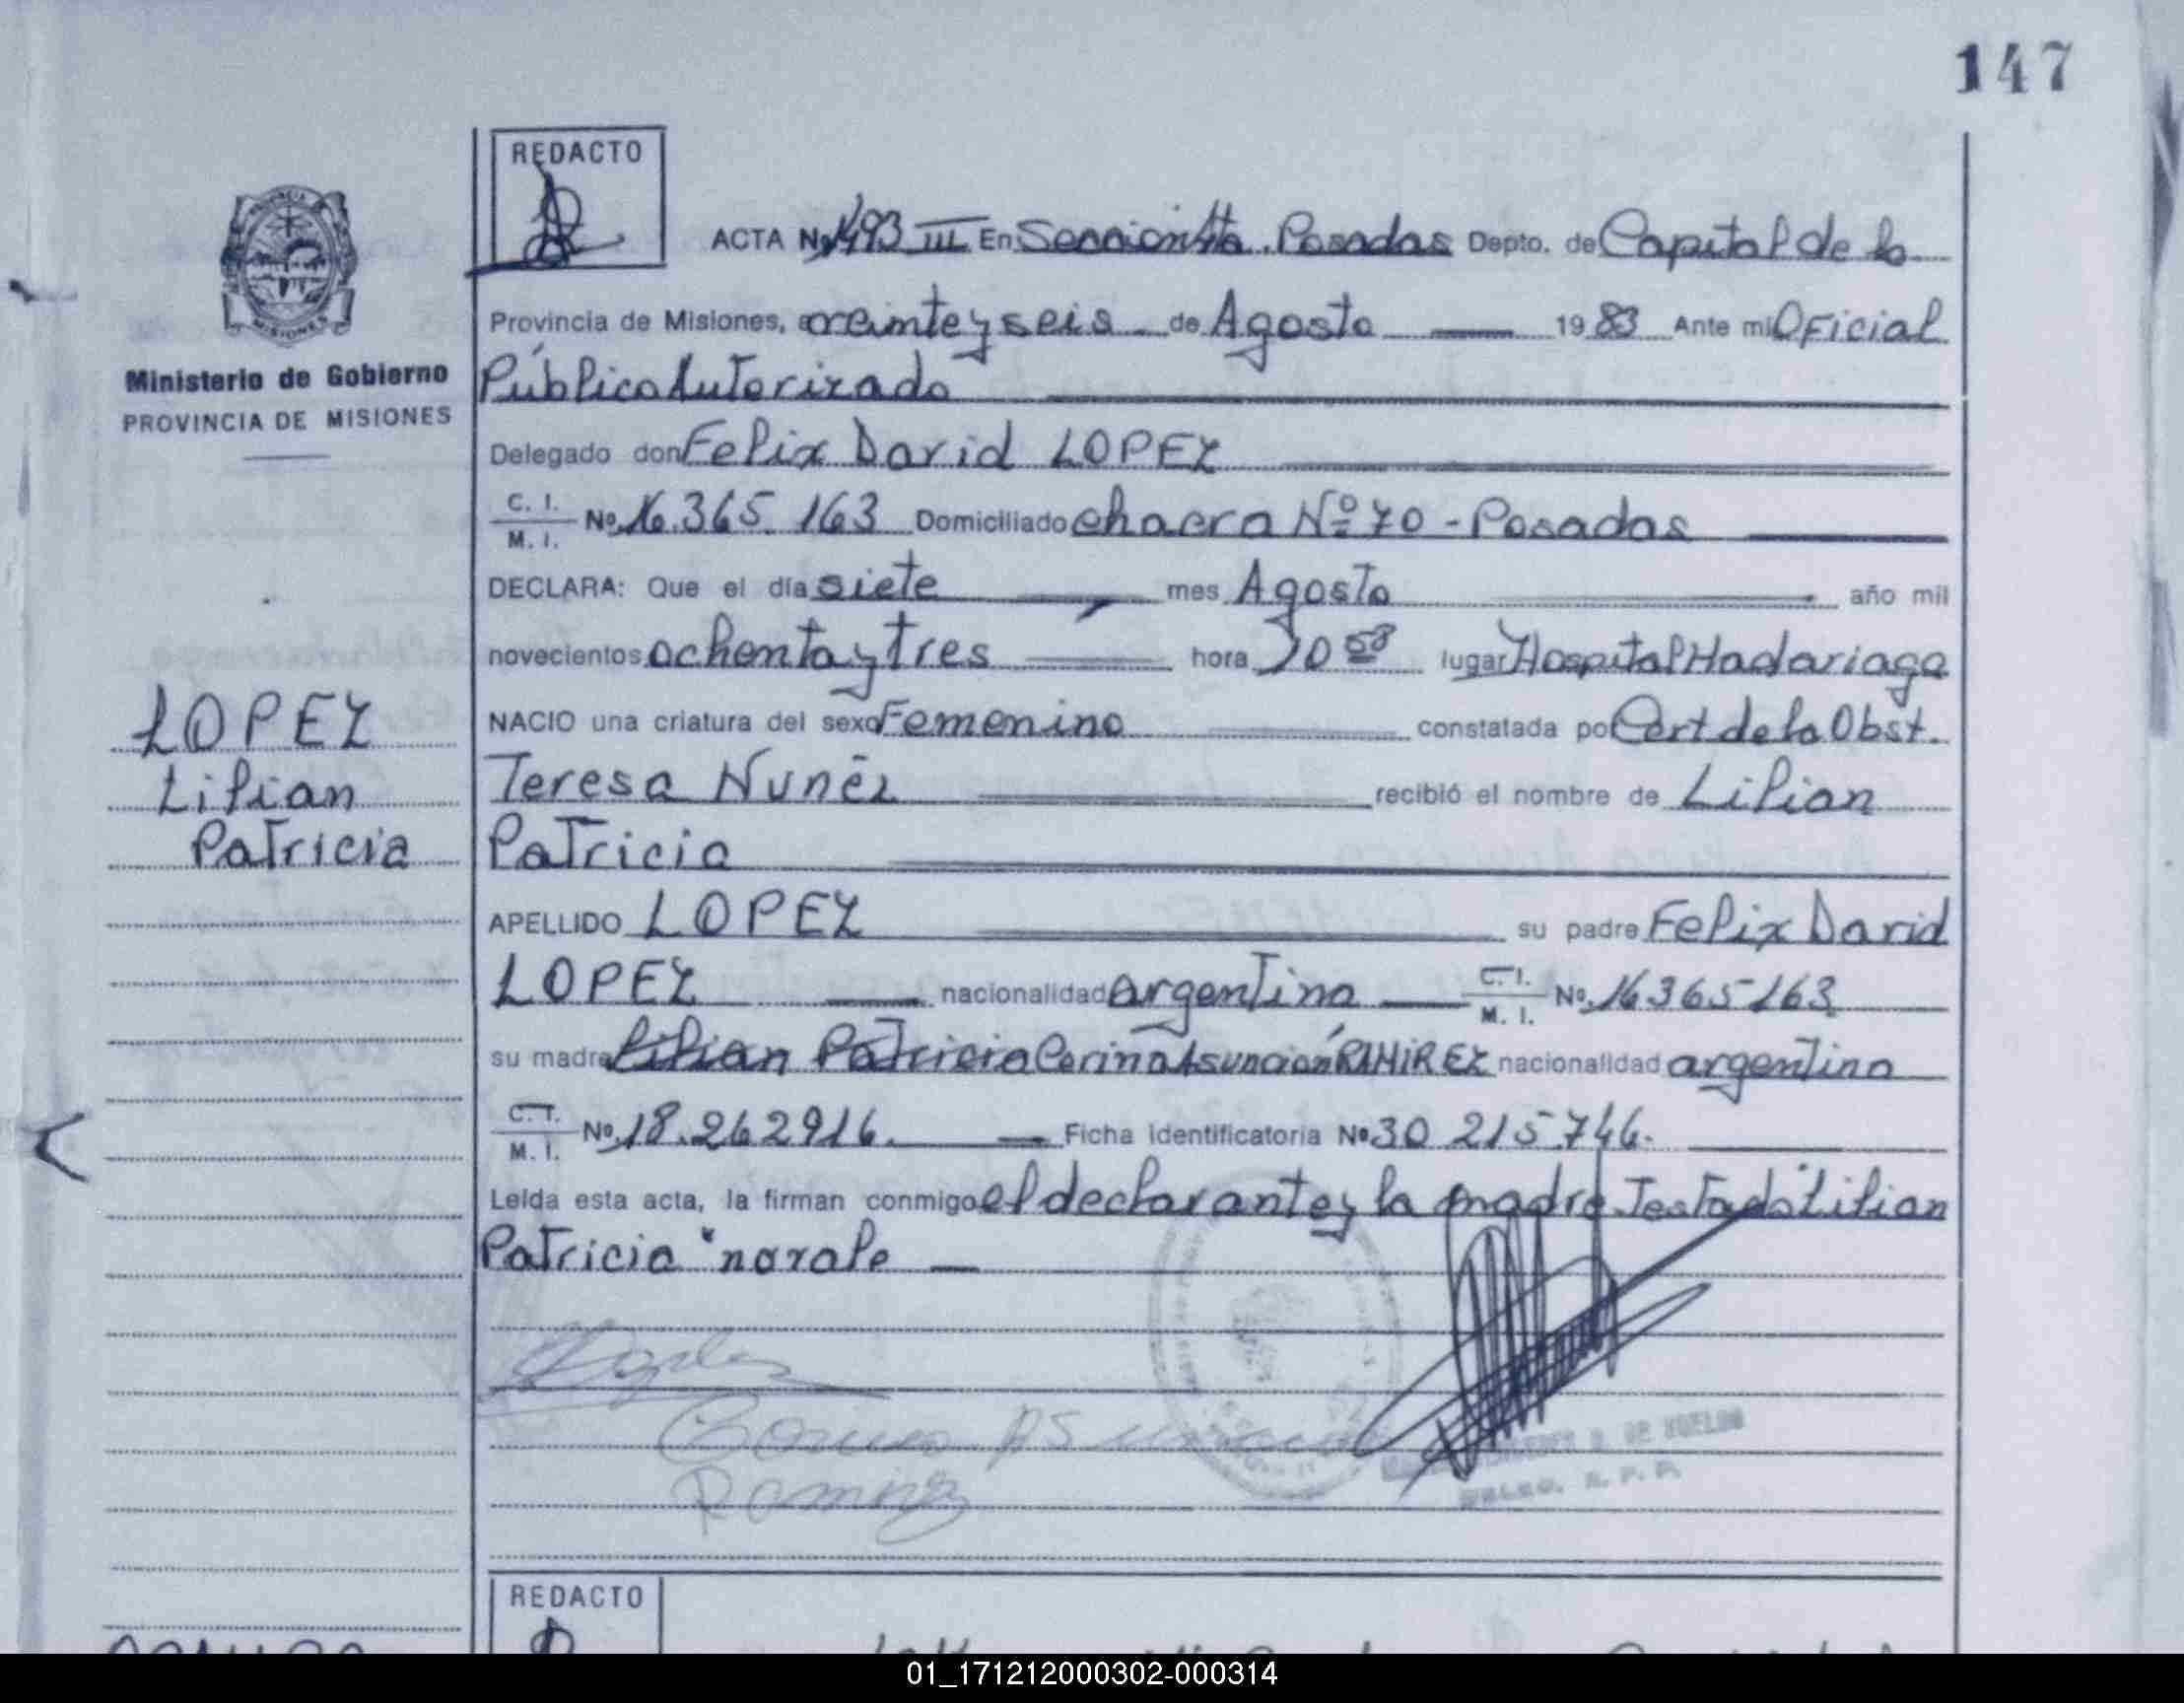 147
REDACTO
ACTA Nº 1493 III En Sección 4ta. Posadas Depto. de Capital de la
Provincia de Misiones, a veinte y seis de Agosto 1983 Ante mi Oficial
Ministerio de Gobierno
PROVINCIA DE MISIONES
Público Autorizado
Delegado don Felix David LOPEZ
C. I. M. I. Nº 16.365.163 Domiciliado chacra Nº 70 - Posadas
DECLARA: Que el día siete mes Agosto año mil
novecientos ochenta y tres hora 10 58 lugar Hospital Madariaga
LOPEZ
NACIO una criatura del sexo Femenino constatada por Cert de la Obst.
Lilian
Teresa Nuñez recibió el nombre de Lilian
Patricia
Patricia
APELLIDO LOPEZ su padre Felix David
LOPEZ nacionalidad argentina C. I. M. I. Nº 16365163
su madre Lilian Patricia Corina Asunción RAMIREZ nacionalidad argentina
C. I. M. I. Nº 18.262916. Ficha Identificatoria Nº 30 215.746.
Leída esta acta, la firman conmigo el declarante y la madre. Testado "Lilian
Patricia" no vale
Ramirez
REDACTO
01_171212000302-000314